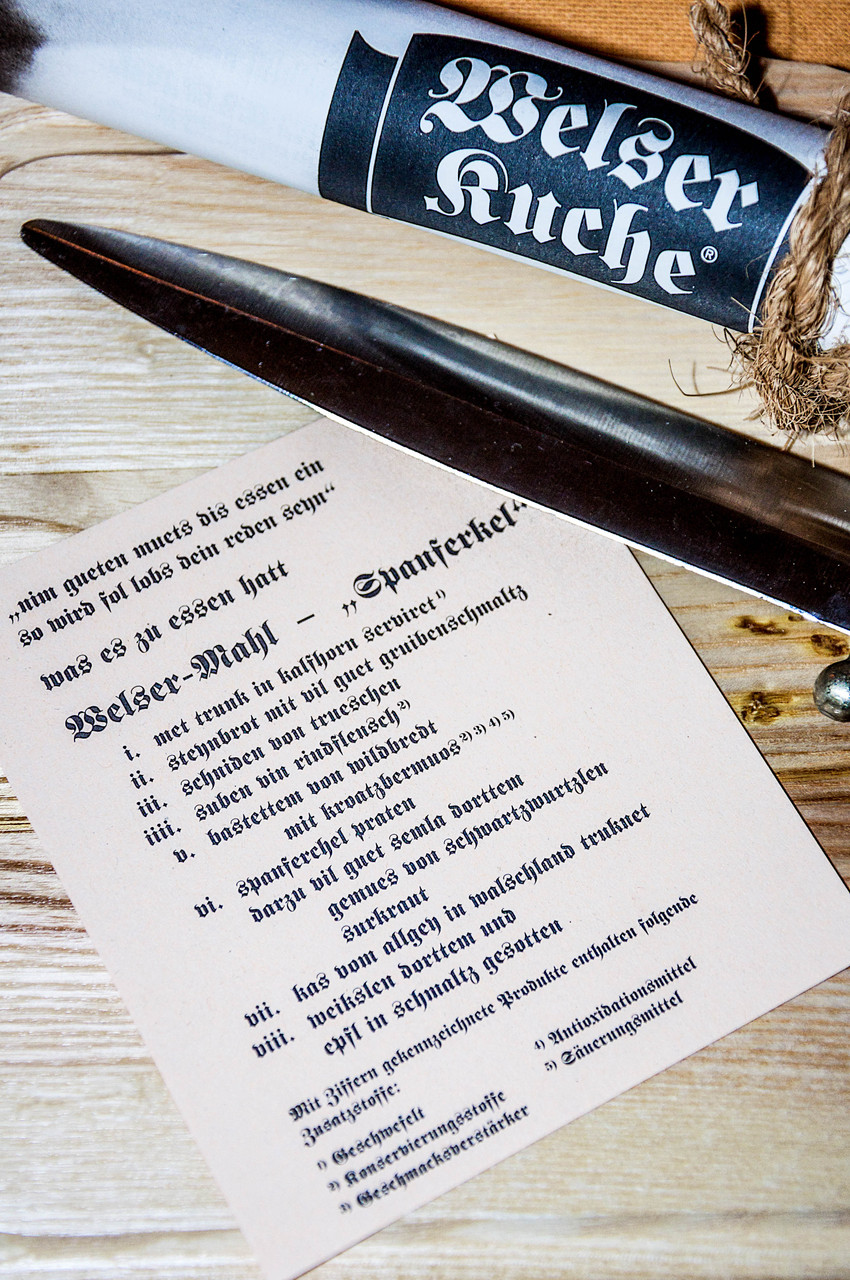 Welser
Kuche®
„nim gueten muets dis essen ein
so wird sol lobs dein reden seyn“
was es zu essen hatt
Welser-Mahl – „Spanferkel“
i. met trunk in kalshorn serviret¹⁾
ii. steynbrot mit vil guet gruibenschmaltz
iii. schniden von trueschen
iiii. suben vin rindflensch²⁾
v. bastettem von wildbredt
mit kroatzbermuos²⁾ ³⁾ ⁴⁾ ⁵⁾
vi. spanferchel praten
darzu vil guet semla dorttem
gemues von schwartzwurtzlen
surkraut
vii. kas vom allgey in walschland truknet
viii. weikslen dorttem und
epfl in schmaltz gesotten
Mit Ziffern gekennzeichnete Produkte enthalten folgende
Zusatzstoffe:
¹⁾ Geschwefelt
²⁾ Konservierungsstoffe
³⁾ Geschmacksverstärker
⁴⁾ Antioxidationsmittel
⁵⁾ Säuerungsmittel